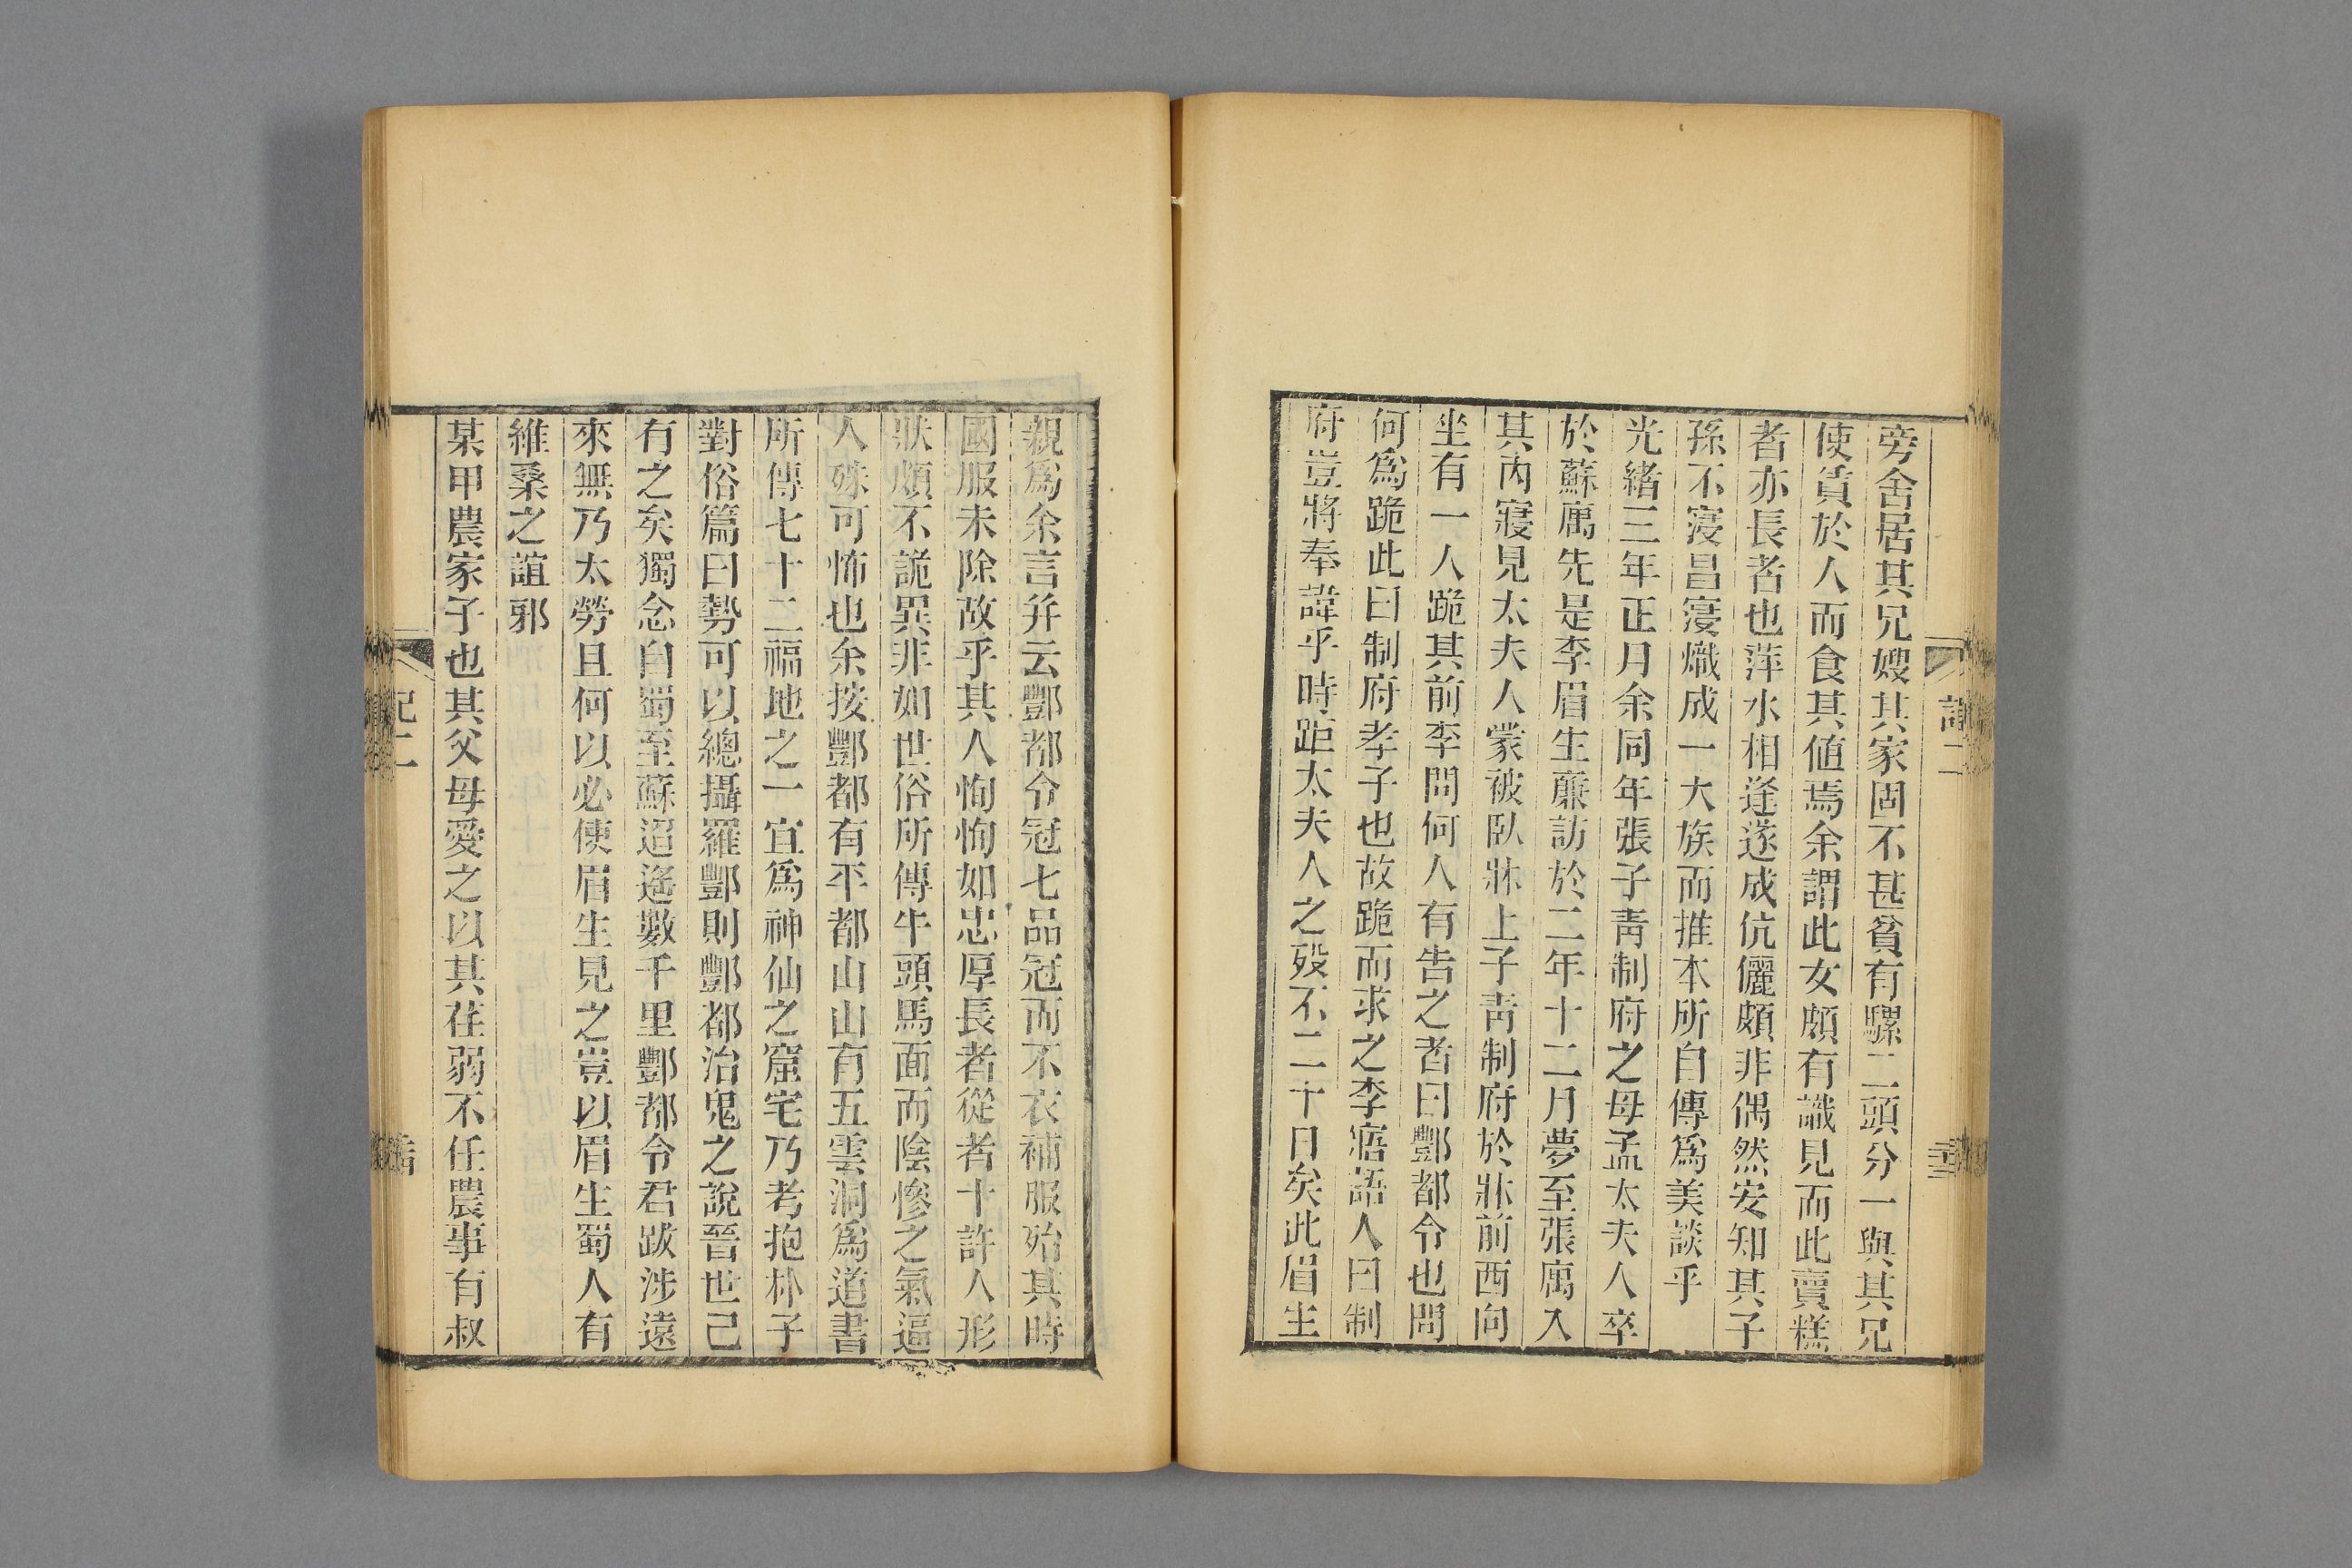 旁舍居其兄嫂其家固不甚貧有騾二頭分一與其兄
使賃於人而食其值焉余謂此女頗有識見而此賣糕
者亦長者也萍水相逢遂成伉儷頗非偶然安知其子
孫不寖昌寖熾成一大族而推本所自傳爲美談乎
光緒三年正月余同年張子青制府之母孟太夫人卒
於蘇寓先是李眉生廉訪於二年十二月夢至張寓入
其內寢見太夫人蒙被臥牀上子青制府於牀前西向
坐有一人跪其前李問何人有告之者曰酆都令也問
何爲跪此曰制府孝子也故跪而求之李寤語人曰制
府豈將奉諱乎時距太夫人之歿不二十日矣此眉生
親爲余言并云酆都令冠七品冠而不衣補服殆其時
國服未除故乎其人恂恂如忠厚長者從者十許人形
狀頗不詭異非如世俗所傳牛頭馬面而陰慘之氣逼
人殊可怖也余按酆都有平都山山有五雲洞爲道書
所傳七十二福地之一宜爲神仙之窟宅乃考抱朴子
對俗篇曰勢可以總攝羅酆則酆都治鬼之說晉世已
有之矣獨念自蜀至蘇迢遙數千里酆都令君跋涉遠
來無乃太勞且何以必使眉生見之豈以眉生蜀人有
維桑之誼邪
某甲農家子也其父母愛之以其荏弱不任農事有叔